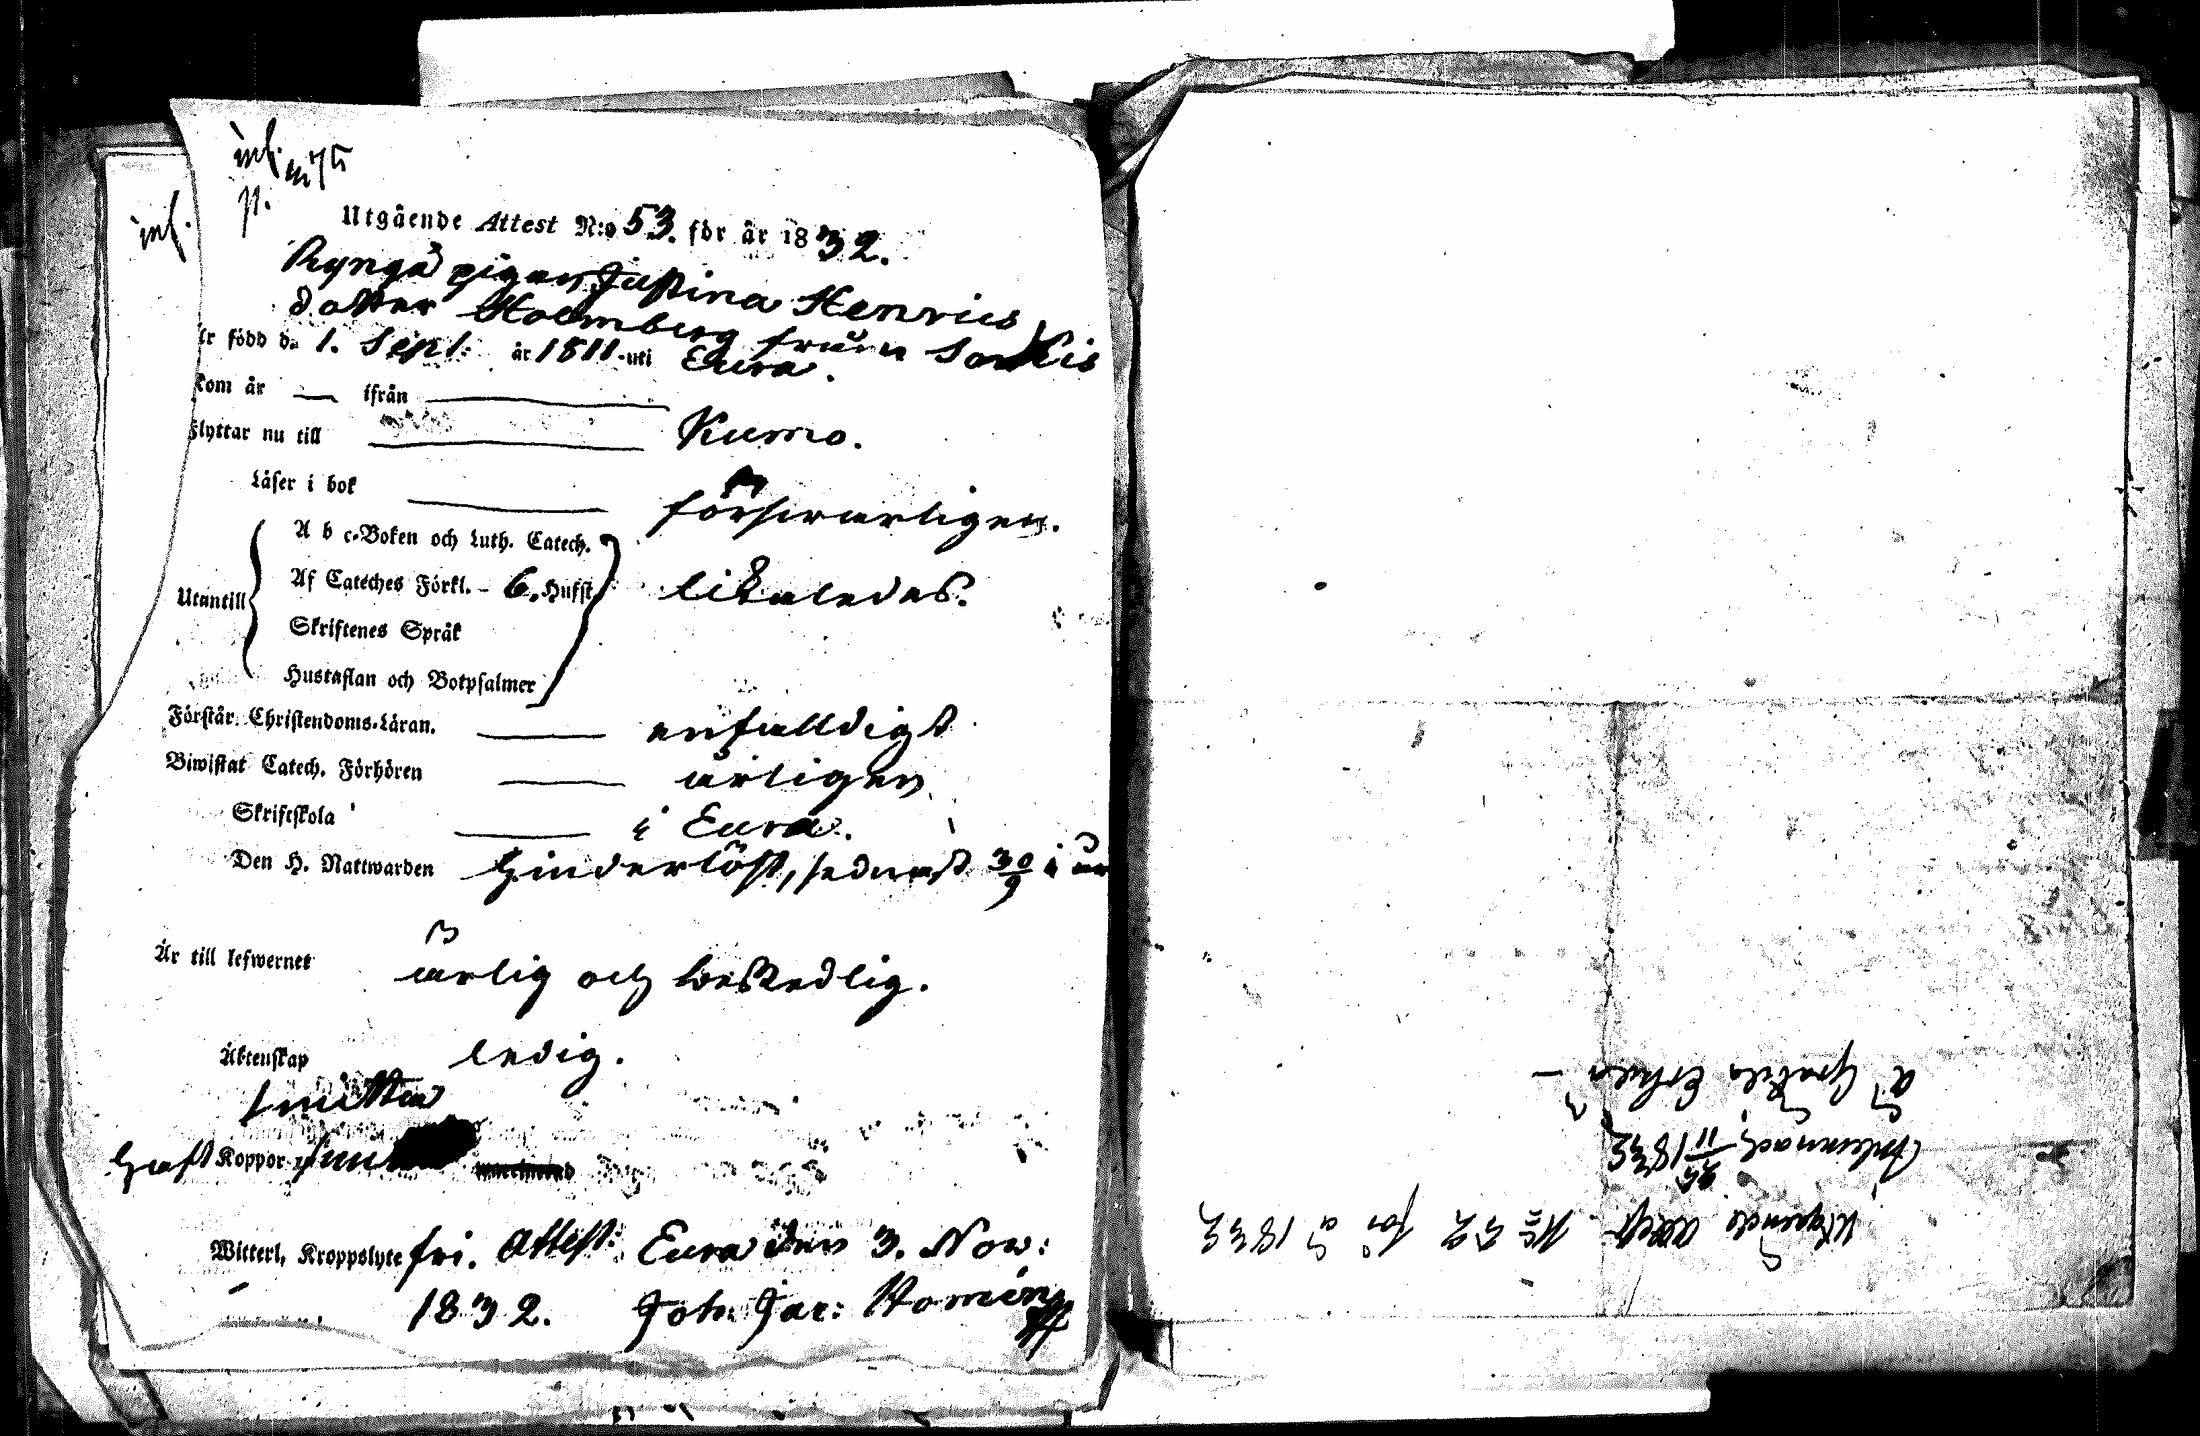 inf.
inf.
p.
Utgående Attest N:o 53. för år 1832.
pigan Justina Henrics
dotter Holmberg från Sorkis
Är född d. 1. Sept. år 1811 uti Eura.
Kom år — ifrån —
Flyttar nu till — Kumo.
Läser i bok — försvarligen.
A b c-Boken och Luth. Catech.
Utantill Af Cateches Förkl. - 6. Hufst. likaledes.
Skriftenes Språk
Hustaflan och Botpsalmer
Förstår Christendoms-Läran. — enfalldigt
Biwistat Catech. Förhören — årligen
Skriftskola — i Eura.
Den H. Nattwarden hinderlöst, sednast 30/9 i år
Är till lefwernet ärlig och beskedlig.
Äktenskap ledig.
Haft Koppor
Witterl. Kroppslyte fri. Attest: Eura den 3. Nov:
1832. Joh. Jac: Roméng
Utgående Attest N:o 52 för å 1832
25/11 1832